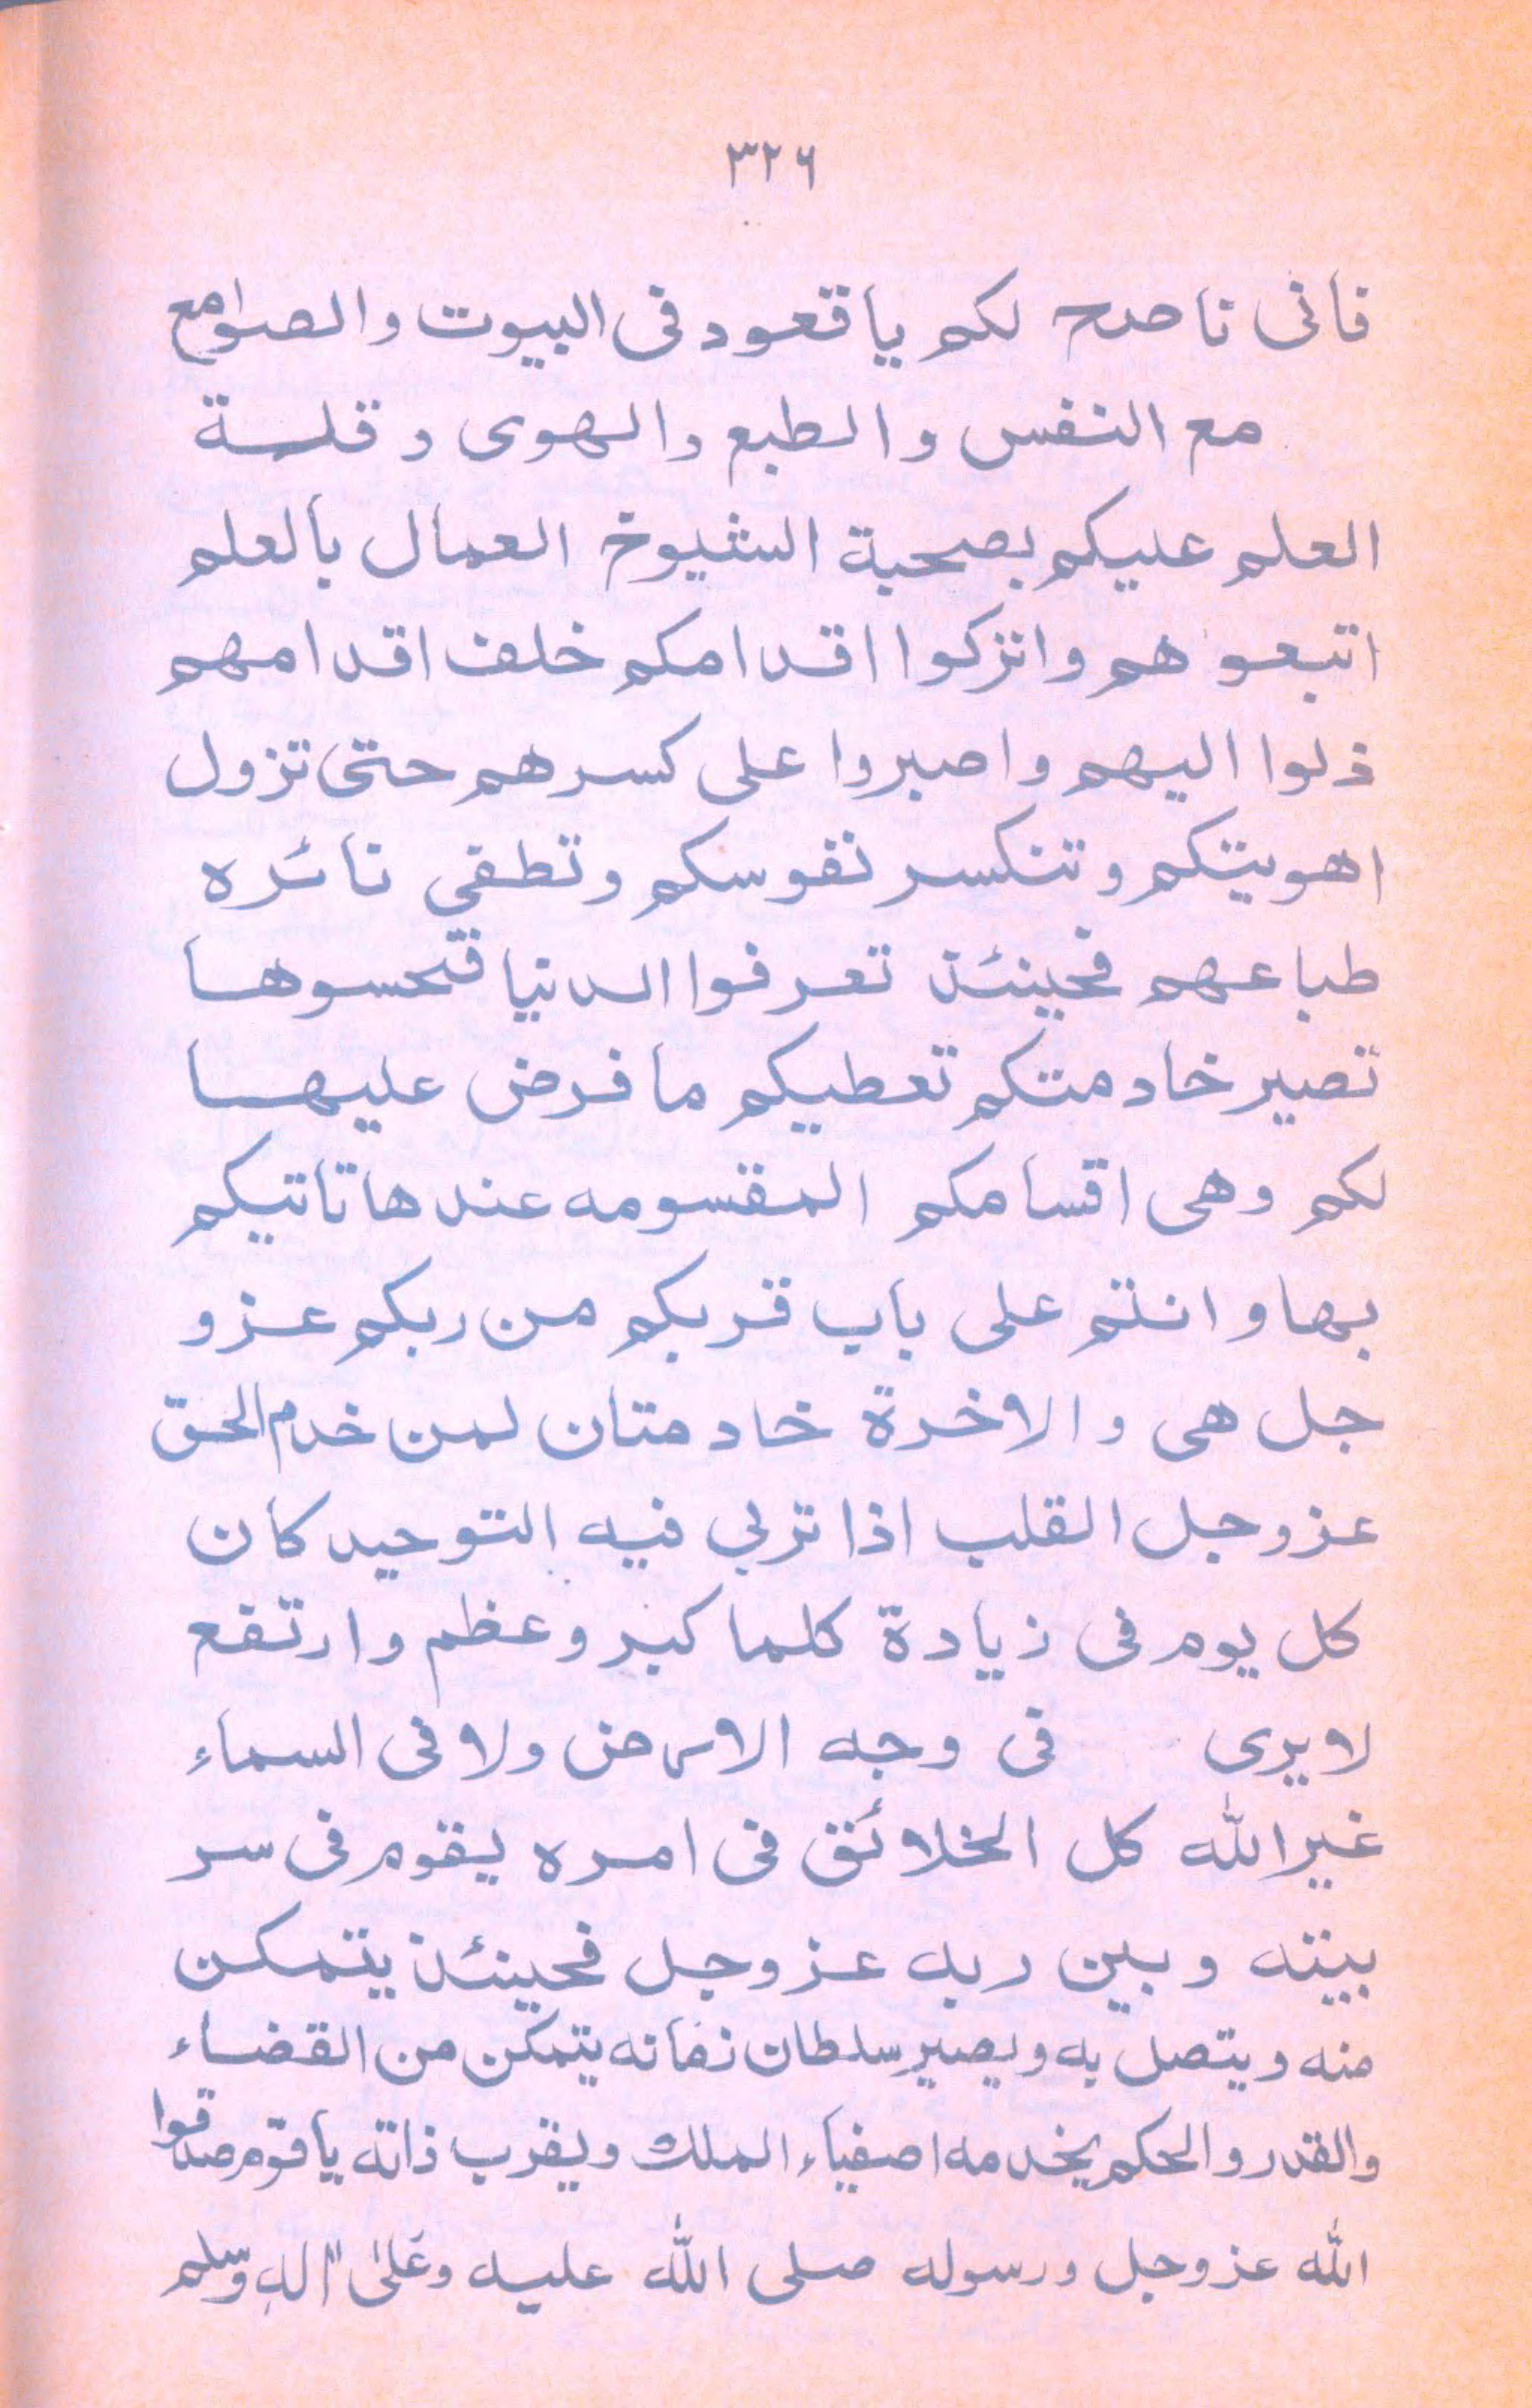 ٣٢٦
فانى ناصح لكم يا قعود فى البيوت والصوامع
مع النفس والطبع والهوى وقلة
العلم عليكم بصحبة الشيوخ العمال بالعلم
اتبعو هم واتركوا اقدامكم خلف اقدامهم
ذلوا اليهم واصبروا على كسرهم حتى تزول
اهويتكم وتنكسر نفوسكم وتطفى نائره
طباعهم فحينئذ تعرفوا الدنيا فتحسوها
تصير خادمتكم تعطيكم ما فرض عليها
لكم وهى اقسامكم المقسومه عندها تاتيكم
بها و انتم على باب قربكم من ربكم عز و
جل هى والاخرة خادمتان لمن خدم الحق
عز وجل القلب اذا تربى فيه التوحيد كان
كل يوم فى زيادة كلما كبر وعظم وارتقع
لا يرى فى وجه الارض ولا فى السماء
غير الله كل الخلائق فى امره يقوم فى سر
بينته وبين ربه عز وجل فحينئذ يتمكن
منه ويتصل به ويصير سلطان زمانه يتمكن من القضاء
والقدر والحكم يخدمه اصفياء الملك ويقرب ذاته يا قوم صدقوا
الله عز وجل ورسوله صلى الله عليه وعلى اله وسلم